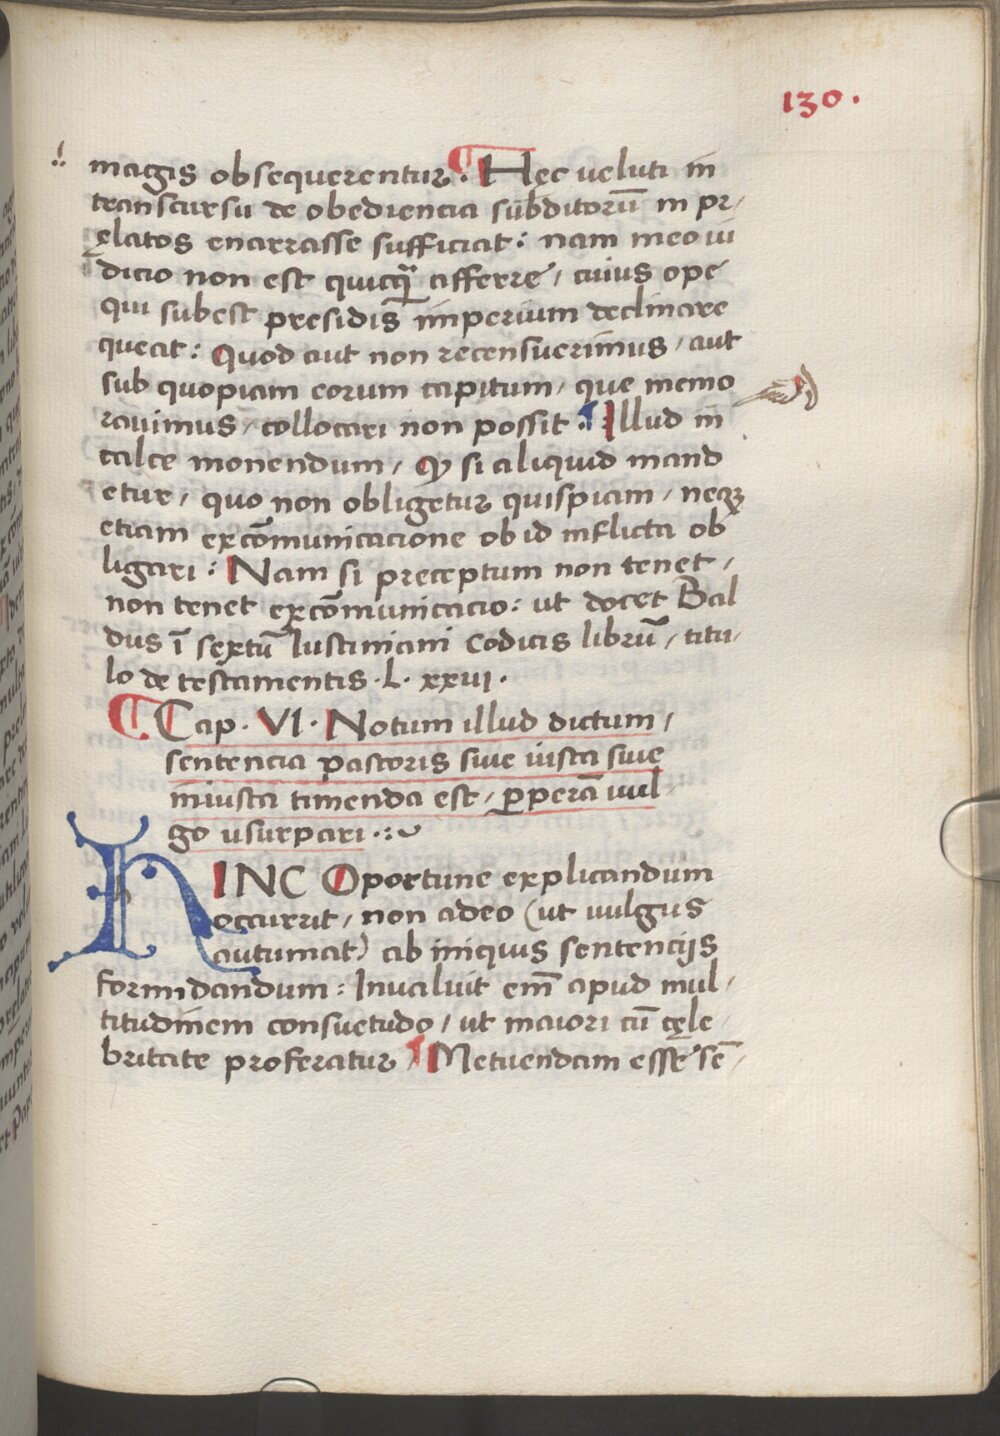 130.
magis obsequerentur. Hęc veluti in
transcursu de obediencia subditorū in pr/
ęlatos enarrasse sufficiat: nam meo iu
dicio non est quicq̄ afferre, cuius ope
qui subest presidis imperium declinare
queat: Quod aut non recensuerimus, aut
sub quopiam eorum capitum, que memo
rauimus, collocari non possit. Illud in
calce monendum, Qꝫ si aliquid mand
etur, quo non obligetur quispiam, neqꝫ
etiam excōmunicacione ob id inflicta ob
ligari: Nam si preceptum non tenet,
non tenet excōmunicacio: ut docet Bal
dus ī sextū Iustiniani codicis librū, titu/
lo de testamentis. L. xxvi.
Cap. VI. Notum illud dictum,
sentencia pastoris siue iusta siue
iniusta timenda est, ꝑperā uul
go usurpari.
HINC Oportune explicandum
occurrit, non adeo (ut uulgus
autumat) ab iniquis sentencijs
formidandum: Inualuit em̄ apud mul/
titudinem consuetudo, ut maiori cū cęle/
britate proferatur Metuendam esse sē/